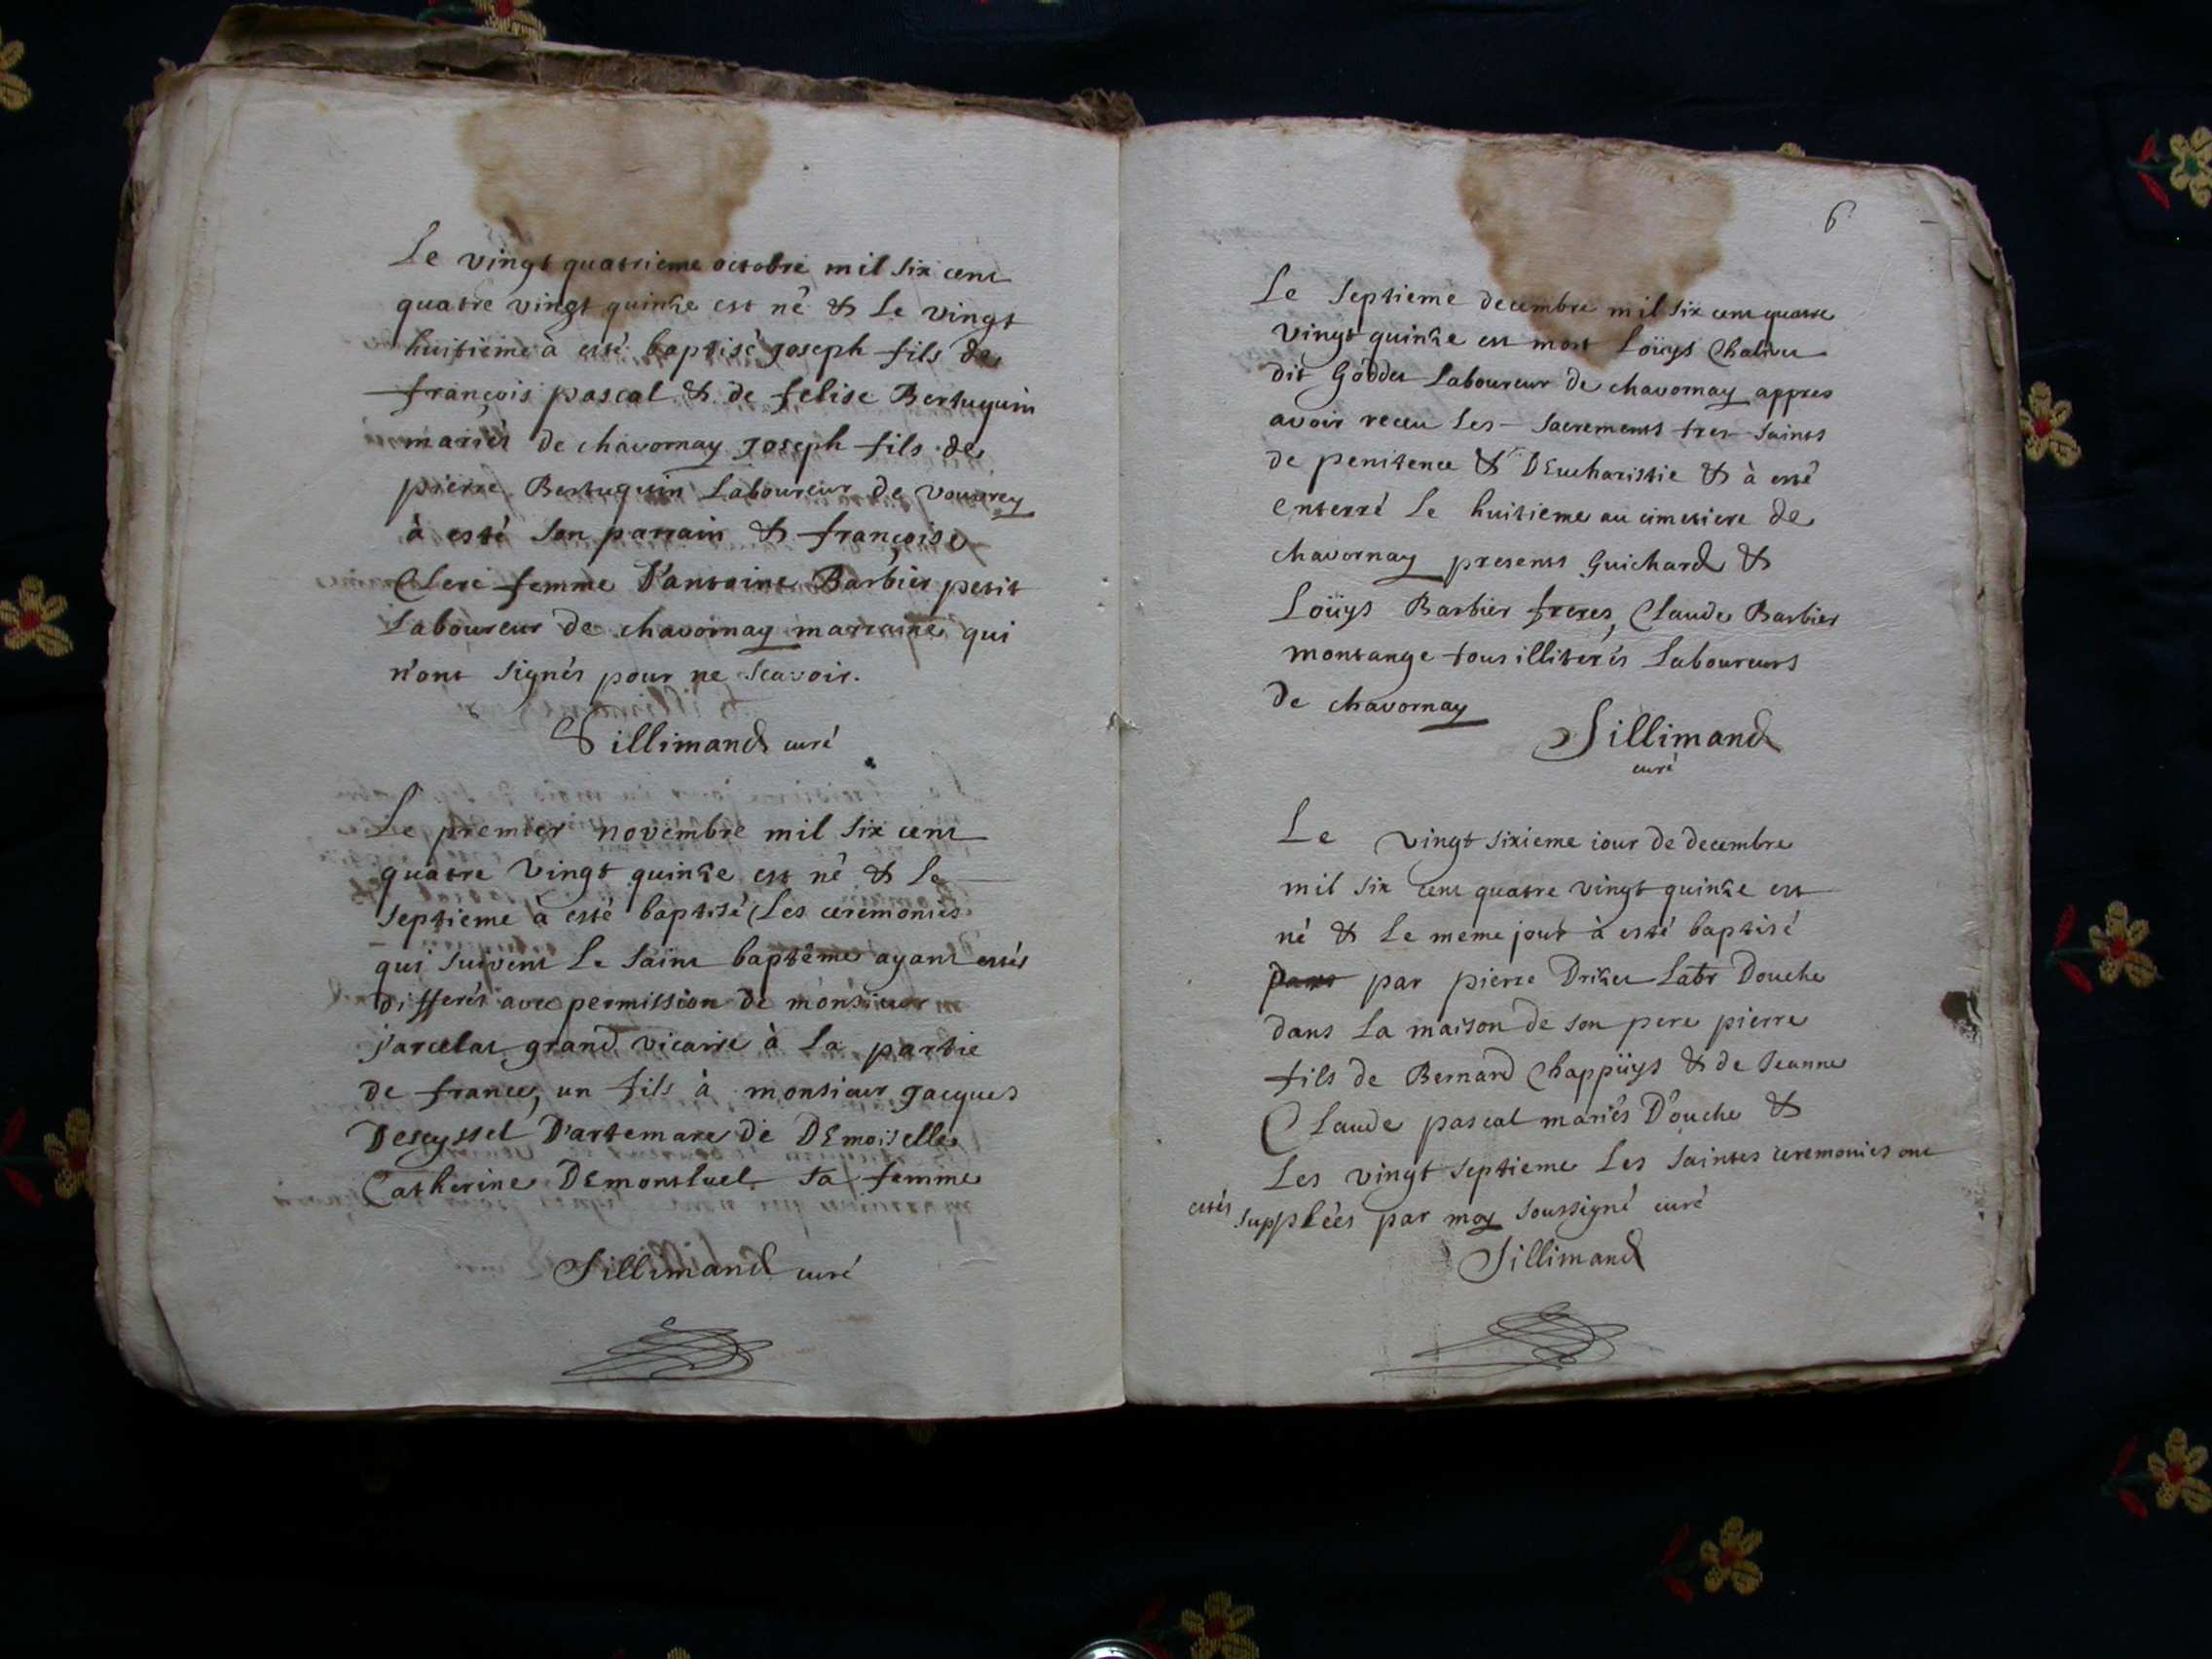 Le vingt quatrieme octobre mil six cent
quatre vingt quinze est né & Le vingt
huitieme à esté baptisé Joseph fils de
françois pascal & de felise Bertuquin
mariés de chavornay Joseph fils de
pierre Bertuquin Laboureur de vouvrey
à esté son parrain & françoise
Clerc femme D'antoine Barbier petit
Laboureur de chavornay marraine qui
n'ont signés pour ne scavoir.
Sillimand curé
Le premier novembre mil six cent
quatre vingt quinze est né & Le
septieme à esté baptisé (Les ceremonies
qui suivent Le saint baptême ayant estés
differés avec permission de monsieur
jarcelat grand vicaire à La partie
de france, un fils à monsieur Jacques
Deseyssel D'artemare de DEmoiselle
Catherine DEmontluel sa femme
Sillimand curé
6
Le septieme decembre mil six cent quatre
vingt quinze est mort Loüys Chalivet
dit Goddet Laboureur de chavornay appres
avoir receu Les sacrements tres saints
de penitence & DEucharistie & à esté
enterré Le huitieme au cimetiere de
chavornay presents Guichard &
Loüys Barbier freres, Claude Barbier
montange tous illiterés Laboureurs
de chavornay
Sillimand
curé
Le vingt sixieme iour de decembre
mil six cent quatre vingt quinze est
né & Le meme jour à esté baptisé
par pierre Drizet Labr Douche
dans La maison de son pere pierre
fils de Bernard Chappüys & de Jeanne
Claude pascal mariés D'ouche &
Les vingt septieme Les saintes ceremonies ont
estés supplées par moy soussigné curé
Sillimand